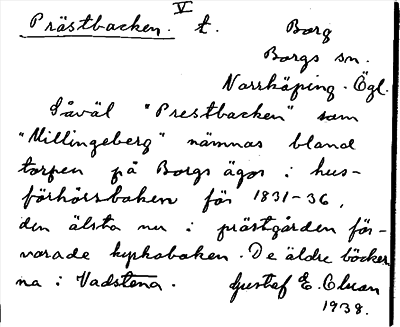 V
Prästbacken. t. Borg
Borgs sn.
Norrköping. Ögl.
Såväl "Prestbacken" som
"Millingeberg" nämnas bland
torpen på Borgs ägor i hus-
förhörsboken för 1831-36,
den älsta nu i prästgården för-
varade kyrkoboken. De äldre böcker
na i Vadstena. Gustef E.
1938.